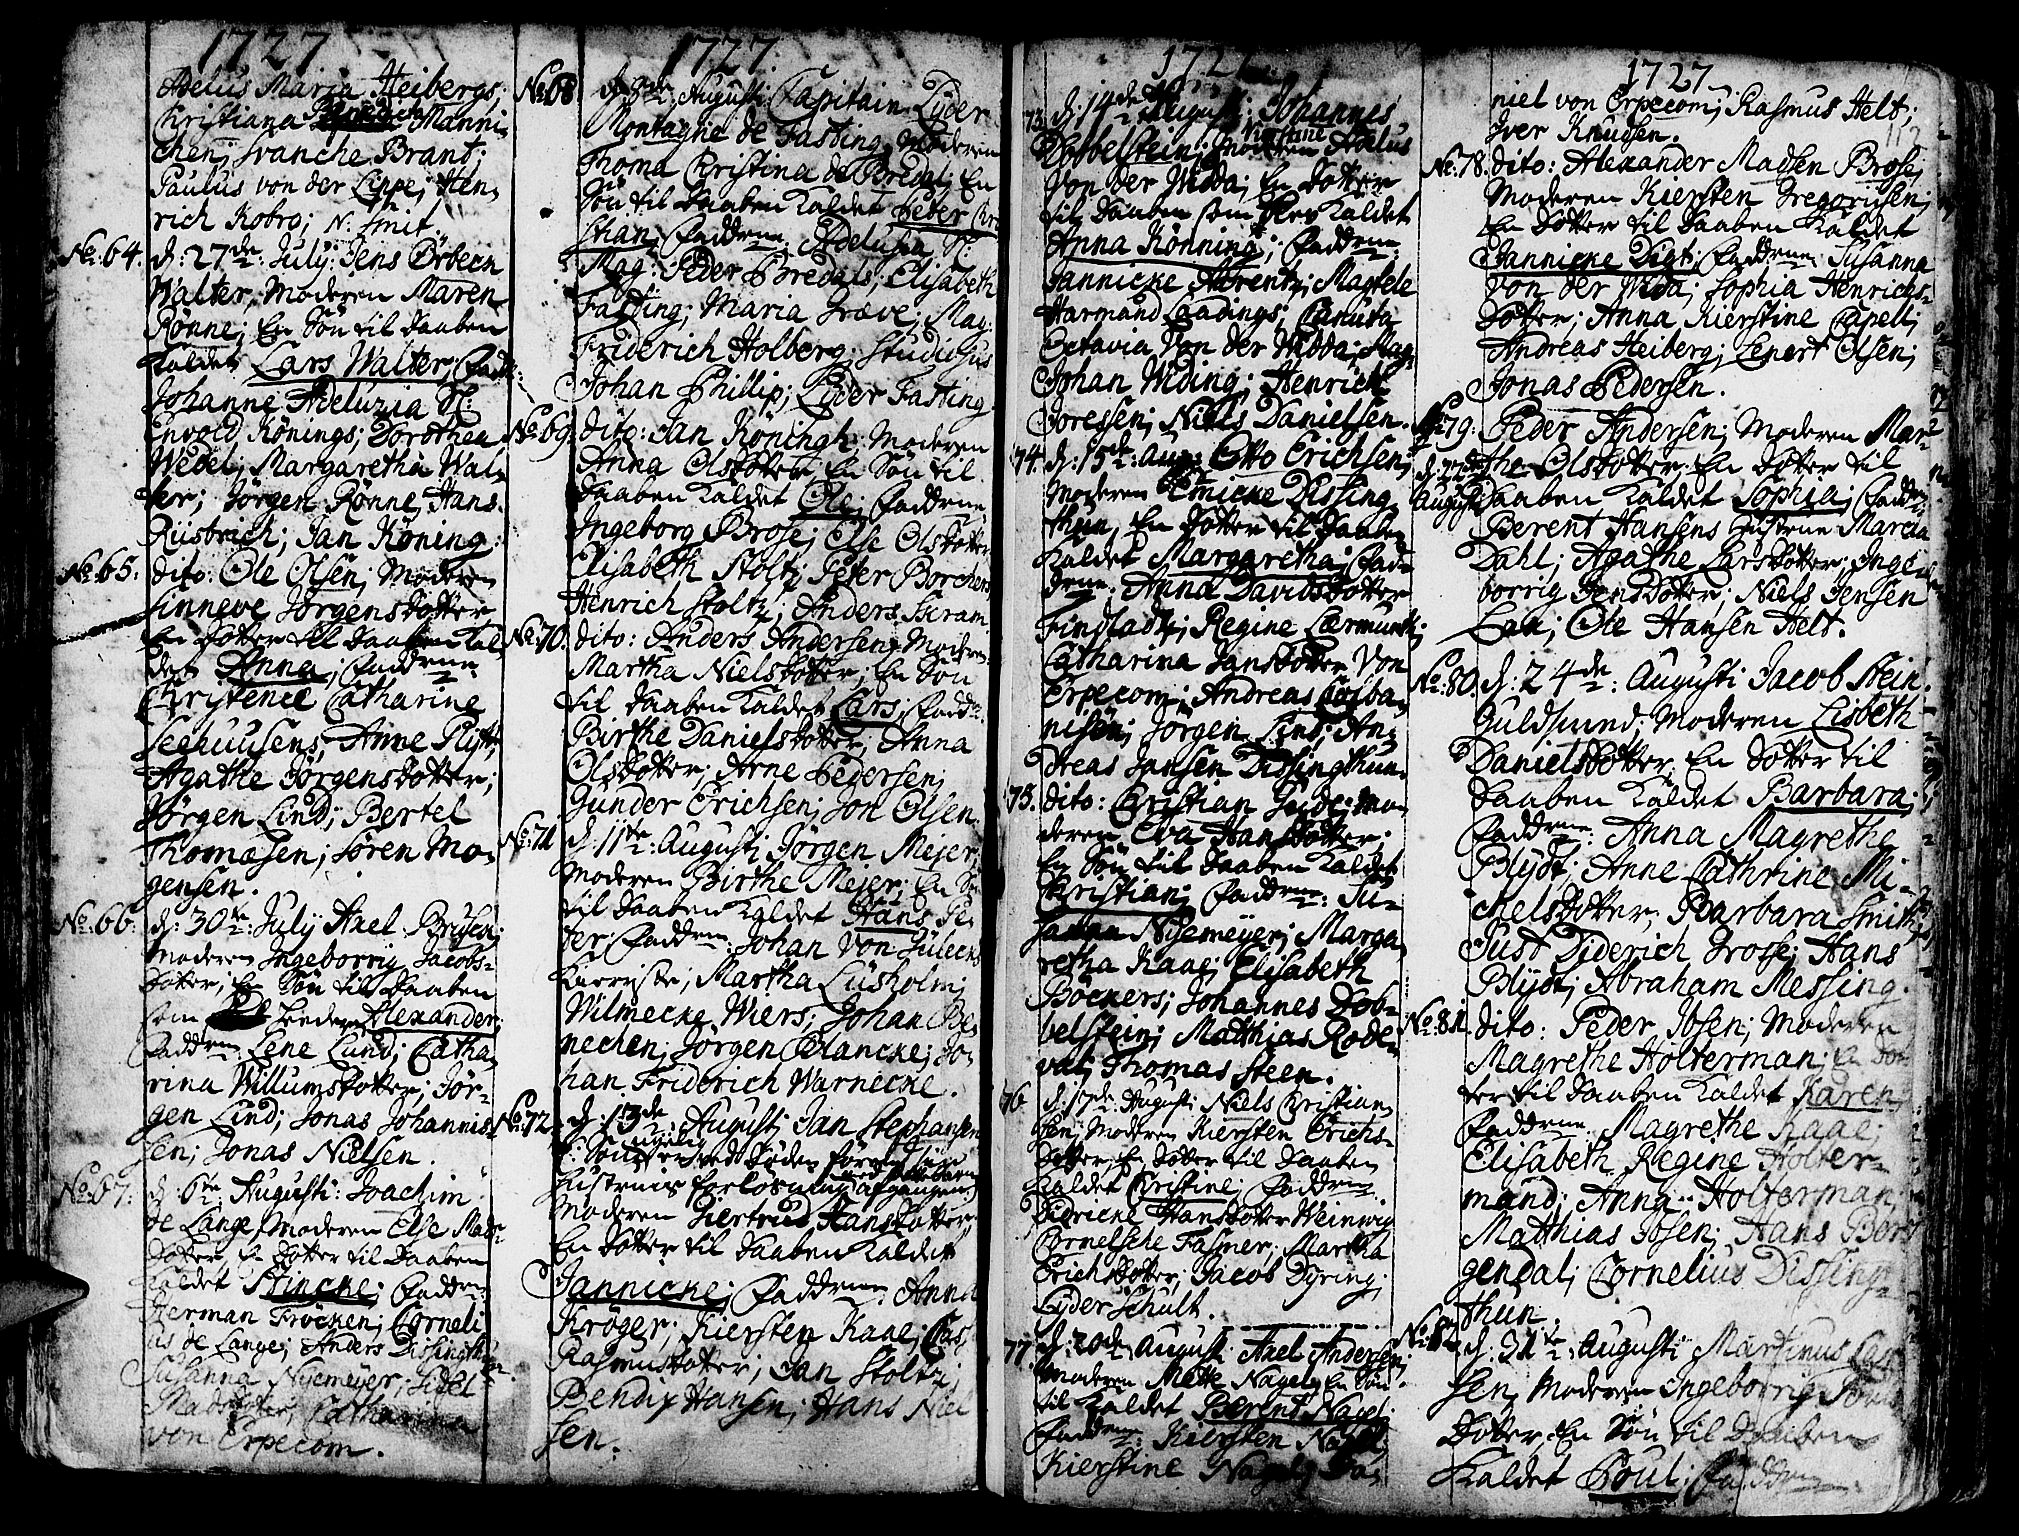 1727
Adelus Maria Heibergs;
Christiana Manni-
chen; Svanche Brant;
Paulus von der Lippe; Hen-
rich Kobro; N. Smit.
No: 64. d: 27de July: Jens Örbech
Walter, Moderen Maren
Rönne; En Sön til Daaben
Kaldet Lars Walter; Fadd:
Johanne Adeluzia Sl:
Envold Könings; Dorothea
Webel; Margaretha Wal-
ter; Jörgen Rönne, Hans
Riisbrich; Jan Köning.
No: 65. dito: Ole Olsen; Moderen
Sinneve Jörgensdotter
En Dotter til Daaben Kal-
det Anna; Faddrene
Christence Catharine
Seehuusens, Anne Plytt,
Agathe Jörgensdotter;
Jörgen Lind; Bertel
Thomæsen; Sören Mo-
gensen.
No: 66. d: 30te July Axel Brusen;
Moderen Ingeborrig Jacobs-
dotter; En Sön til Daaben
som Alexander;
Faddrene: Lene Lund; Catha-
rina Willumsdotter; Jör-
gen Lind; Jonas Johannis-
sen; Jonas Nielsen.
No: 67. d: 6te Augusti: Joachim
de Lange, Moderen Else Mads-
dotter, En Dotter til Daaben
Kaldet Stincke; Faddr:
Herman Fröcken; Corneli
us de Lange; Anders Dissingthun
Susanna Nyemeyer; Sidsel
Madsdotter; Catharina
von Erpecom.
1727
No: 68 Augusti: Capitain Lyder
Montagne de Fasting, Moderen
Thoma Christina de Bredal; En
Sön til Daaben Kaldet Peder Chri
stian; Faddrene: Adelusia Sl:
Mag: Peder Bredals; Elisabeth
Fasting; Maria Græve; Mag:
Friderich Holberg, Studiosus
Johan Phillip; Lyder Fasting
No: 69. dito: Jan Köningh, Moderen
Anna Olsdotter, En Sön til
Daaben Kaldet Ole; Faddrene
Ingeborg Brose; Else Olsdotter
Elisabeth Stoltz; Peter Borchers
Henrich Stoltz; Anders Skram.
No: 70. dito: Anders Andersen, Moderen
Martha Nielsdotter; En Sön
til Daaben Kaldet Lars; Faddr:
Birthe Danielsdotter, Anna
Olsdotter; Arne Pedersen;
Gunder Erichsen; Jon Olsen.
No: 71 d: 11te: Augusti Jörgen Mejer
Moderen Birthe Mejer; En Sön
til Daaben Kaldet Hans Pe-
der: Faddrene: Johan von Jülichs
Martha Lusholm;
Wilmecke Wiers; Johan Be-
nechen; Jörgen Blancke; Jo-
han Friderich Warnecke.
No: 72. d: 13de: Augusti Jan Stephansen
Moderen Giertrud Hansdotter
En Dotter til Daaben Kaldet
Jannicke; Faddrene: Anna
Kröger; Kiersten Kaae;
Rasmusdotter; Jan Stoltz;
Bendix Hansen; Hans Niel
sen.
1727
73. d: 14de Augusti; Johannes
Dobbelstein; Moderen Kirstine Adelus
Von der Widda; En Dotter
til Daaben som blev Kaldet
Anna Könning; Faddrene:
Jannicke Ahrentz; Magtele
Harmand Ladings; Canuta
Octavia Von der Widda; Mag:
Johan Widing; Henrich
Joressen; Niels Danielsen.
74. d: 15de: Aug: Otto Erichsen;
Moderen Emicke Dissing
thun, En Dotter til Daaben
Kaldet Margaretha; Fad-
drene: Anna Davidsdotter
Findstadt; Regine Lærmundt;
Catharina Jansdotter Von
Erpecom; Andreas Colba-
nisen; Jörgen Lind; An-
dreas Jansen Dissingthun.
75. dito: Christian Juide; Mo-
deren Eva Hansdotter;
En Sön til Daaben Kaldet
Christian; Faddrene: Su-
sanna Nyemeyer; Marga-
retha Kaae; Elisabeth
Böckers; Johannes Dob-
belstein; Matthias Rode-
vat; Thomas Steen.
76 d: 17de: Augusti Niels Christian
sen; Moderen Kiersten Erichs-
dotter, En Dotter til Daaben
Kaldet Christine; Faddrene
Didricke Hansdotter Weinwig
Cornelsche Fasmer; Martha
Erichsdotter; Jacob Dyring;
Lyder Schult.
77. d: 20de Augusti Axel Andersen
Moderen Mette Nagel, En Sön
til Kaldet Berent Nagel
Faddrene: Kiersten Nagel
Kierstine Nagel; Da-
1727
niel von Erpecom; Rasmus Helt;
Iver Knudsen.
No: 78. dito: Alexander Madsen Brose;
Moderen Kiersten Gregoriisen;
En Dotter til Daaben Kaldet
Jannicke Digt; Faddrene: Susanna
Von der Wida; Sophia Henrichs-
dotter; Anna Kierstine Capell;
Andreas Heiberg; Lenert Olsen;
Jonas Pedersen.
No: 79. Peder Andersen; Moderen Mar-
the Olsdotter. En Dotter til
Daaben Kaldet Sophia; Faddr:
Berent Hansens Hustrue Marcia
Dahl; Agathe Larsdotter; Inge-
borrig Jensdotter; Niels Jensen
Lax; Ole Hansen Helt.
No: 80. d: 24de: Augusti Jacob Stein
Guldsmed; Moderen Lisbeth
Danielsdotter, En Dotter til
Daaben Kaldet Barbara;
Faddrene: Anna Magrethe
Blydt; Anne Cathrine Mi-
chelsdotter, Barbara Smith,
Just Diderich Grose; Hans
Blydt; Abraham Messing.
No: 81. dito: Peder Ibsen; Moderen
Magrethe Holterman; En Dot-
ter til Daaben Kaldet Karen,
Faddrene: Magrethe Kaae;
Elisabeth Regine Holter-
mand; Anna Holterman;
Matthias Ibsen; Hans Bor
gendal; Cornelius Dissing-
thun.
No: 82 d: 31te: Augusti Martinus Las
sen, Moderen Ingeborrig
Dotter, En Sön til Daaben
Kaldet Poul; Faddrene